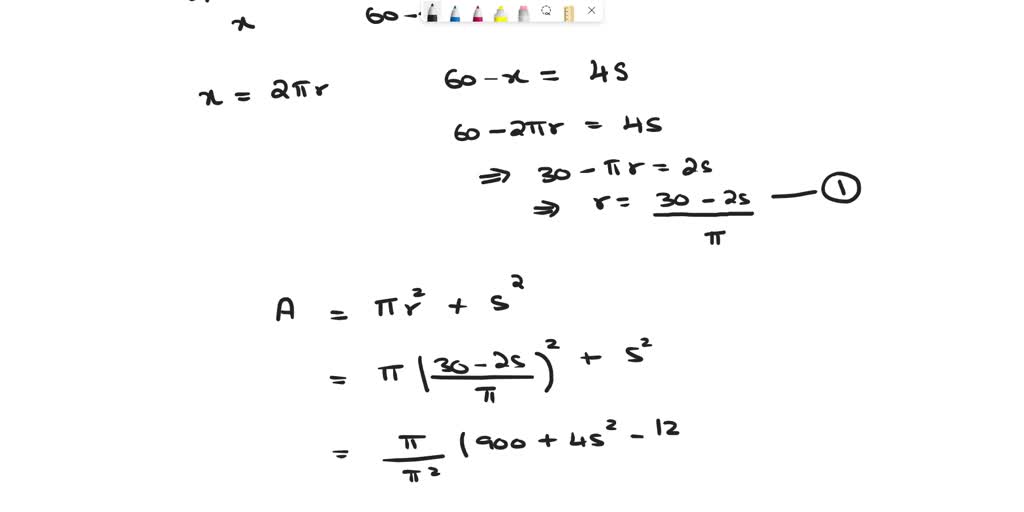 x 60-
x = 2πr 60 - x = 4s
60 - 2πr = 4s
⇒ 30 - πr = 2s
⇒ r = (30 - 2s)/π — ①
A = πr² + s²
= π ((30 - 2s)/π)² + s²
= π/π² (900 + 4s² - 12